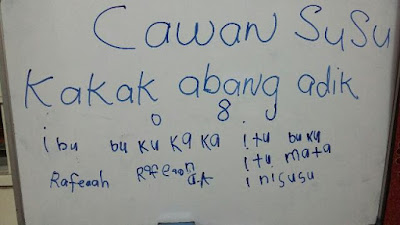 Cawan SuSu
Kakak abang adik
o 8.
ibu buku kaka itu buku
itu mata
Rafeaah inisusu